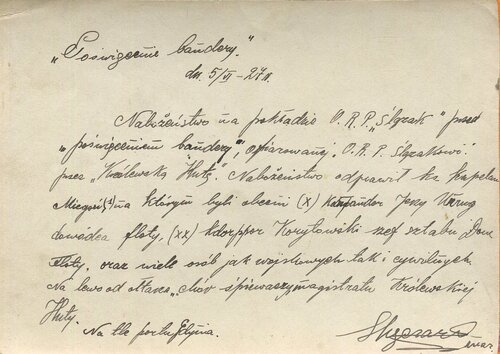 „Poświęcenie bandery."
dn. 5/VI – 27 r.
Nabożeństwo na pokładzie O.R.P. „Ślązak" przed
„poświęceniem bandery", ofiarowanej O.R.P. Ślązakowi
przez „Królewską Hutę". Nabożeństwo odprawił ks. kapelan
na którym byli obecni (x) komandor Jerzy
dowódca floty, (xx) kdor ppor Korytowski szef sztabu Dow.
Floty, oraz wiele osób jak wojskowych tak i cywilnych.
Na lewo od ołtarza „chór śpiewaczy magistratu Królewskiej
Huty.
Na tle portu Gdynia.
mar.